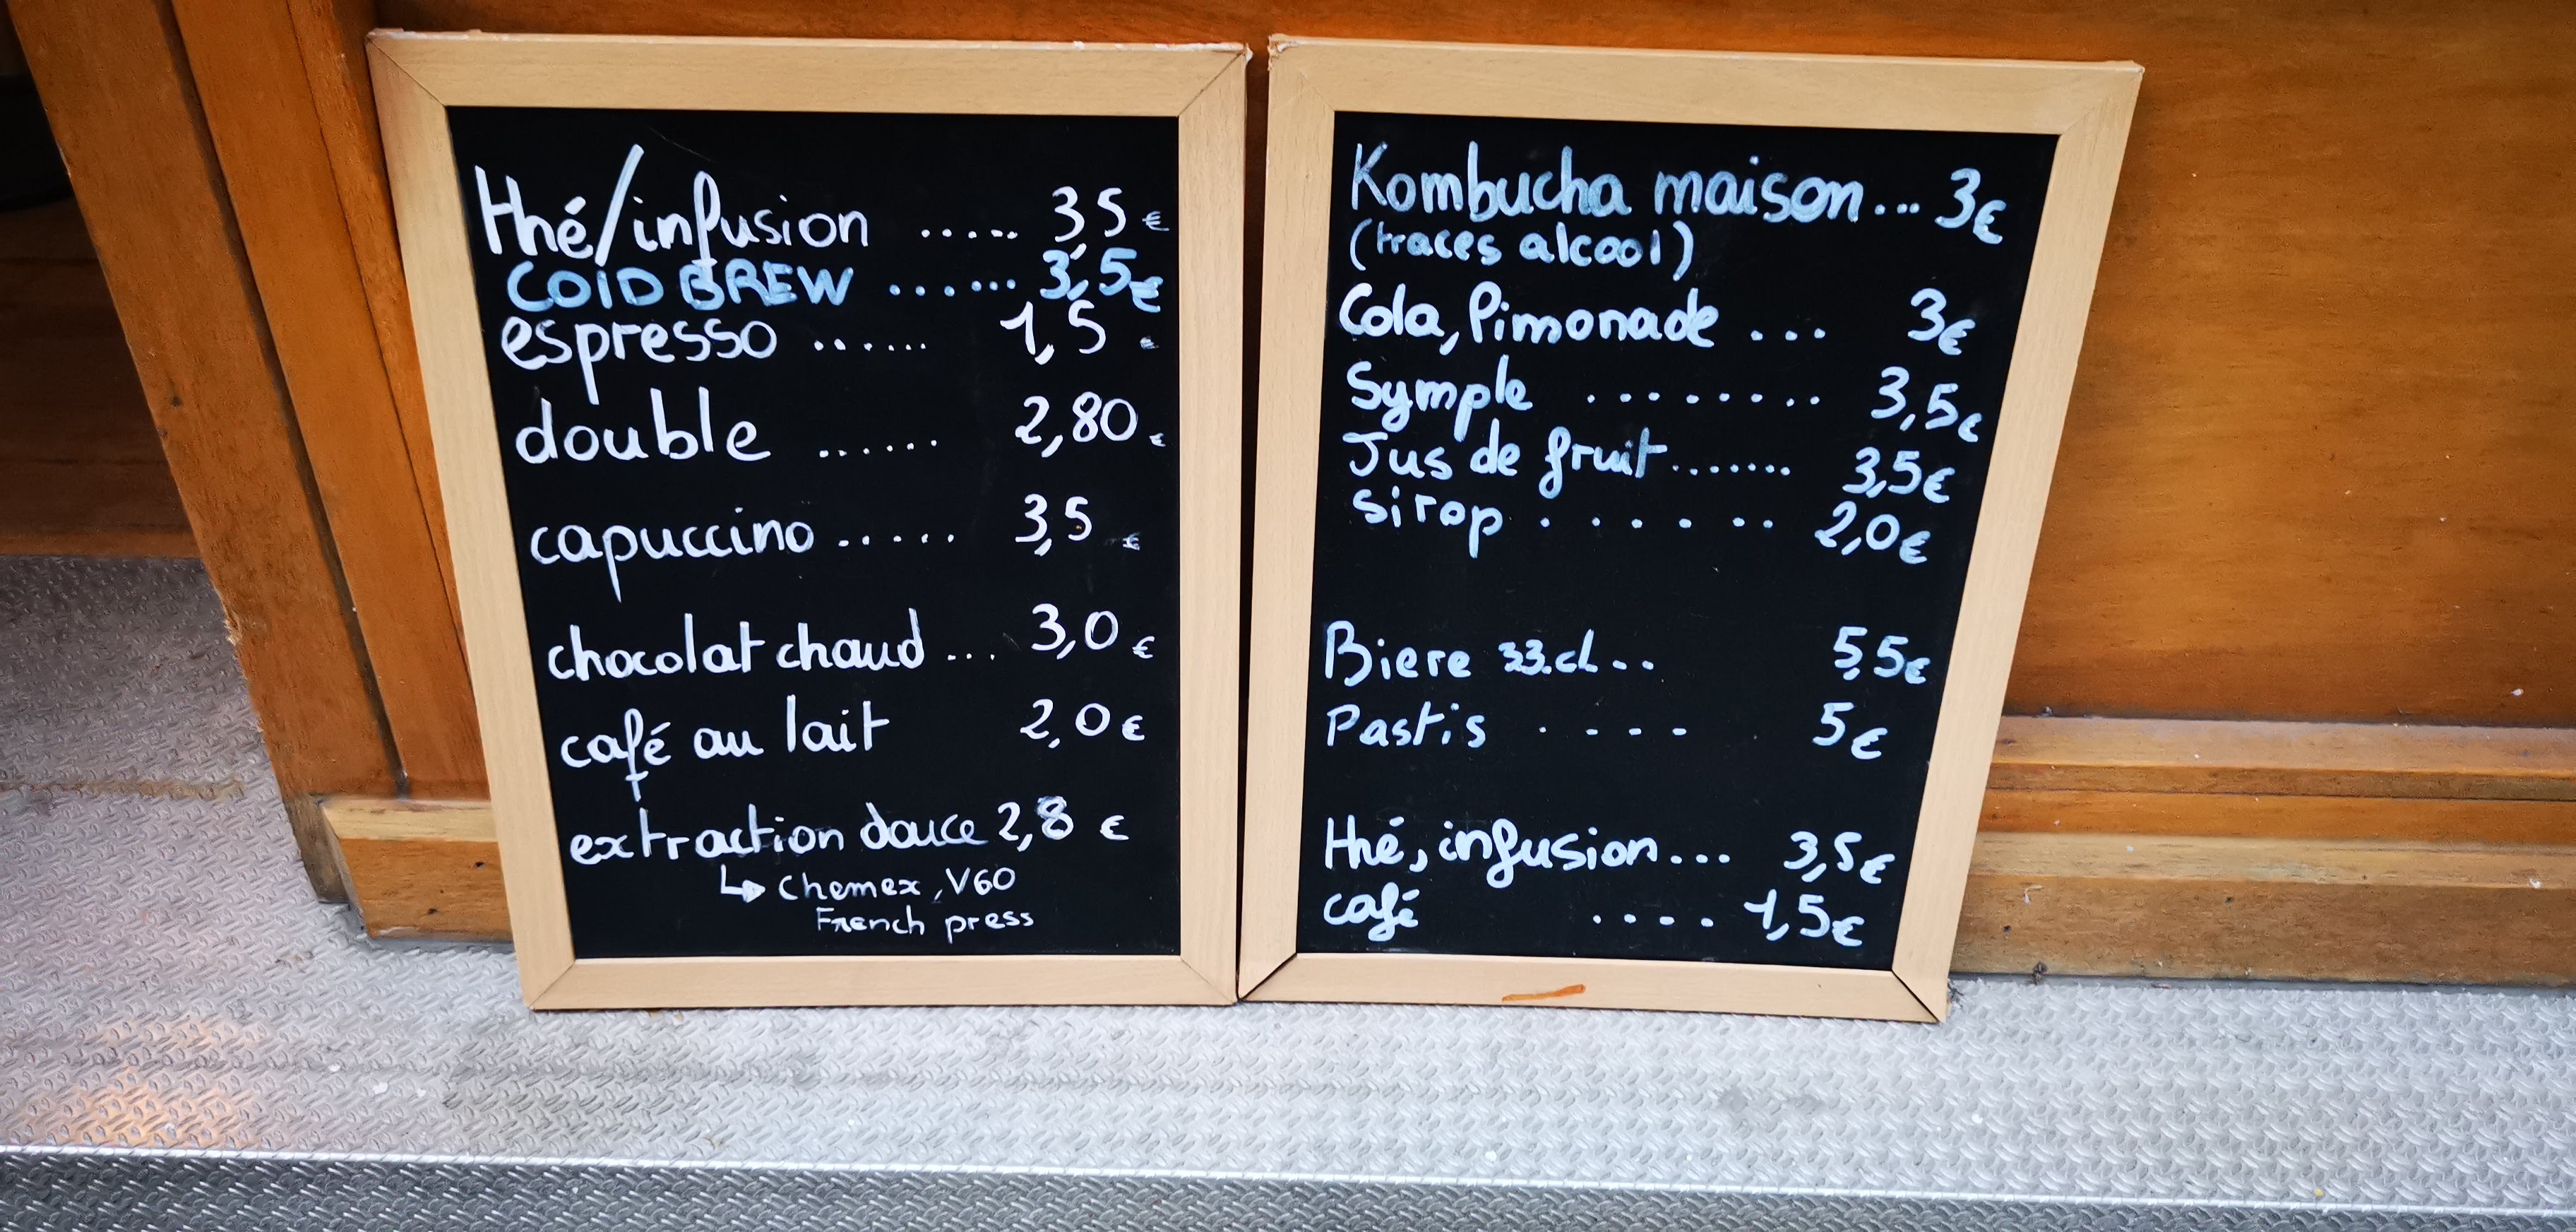 Thé/infusion ..... 3,5 €
COlD BREW ....... 3,5€
espresso ...... 1,5 €
double ...... 2,80 €
capuccino ..... 3,5 €
chocolat chaud ... 3,0 €
café au lait 2,0 €
extraction douce 2,8 €
↳ Chemex, V60
French press
Kombucha maison... 3€
(traces alcool)
Cola, limonade ... 3€
Symple ........ 3,5€
Jus de fruit....... 3,5€
sirop ...... 2,0€
Biere 33.cl.. 5,5€
Pastis .... 5€
Thé, infusion... 3,5€
café .... 1,5€